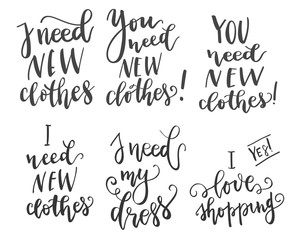 I need
NEW
clothes
You
need
NEW
clothes!
YOU
need
NEW
clothes!
I
need
NEW
clothes
I need
my
dress
I Yes!
love
shopping